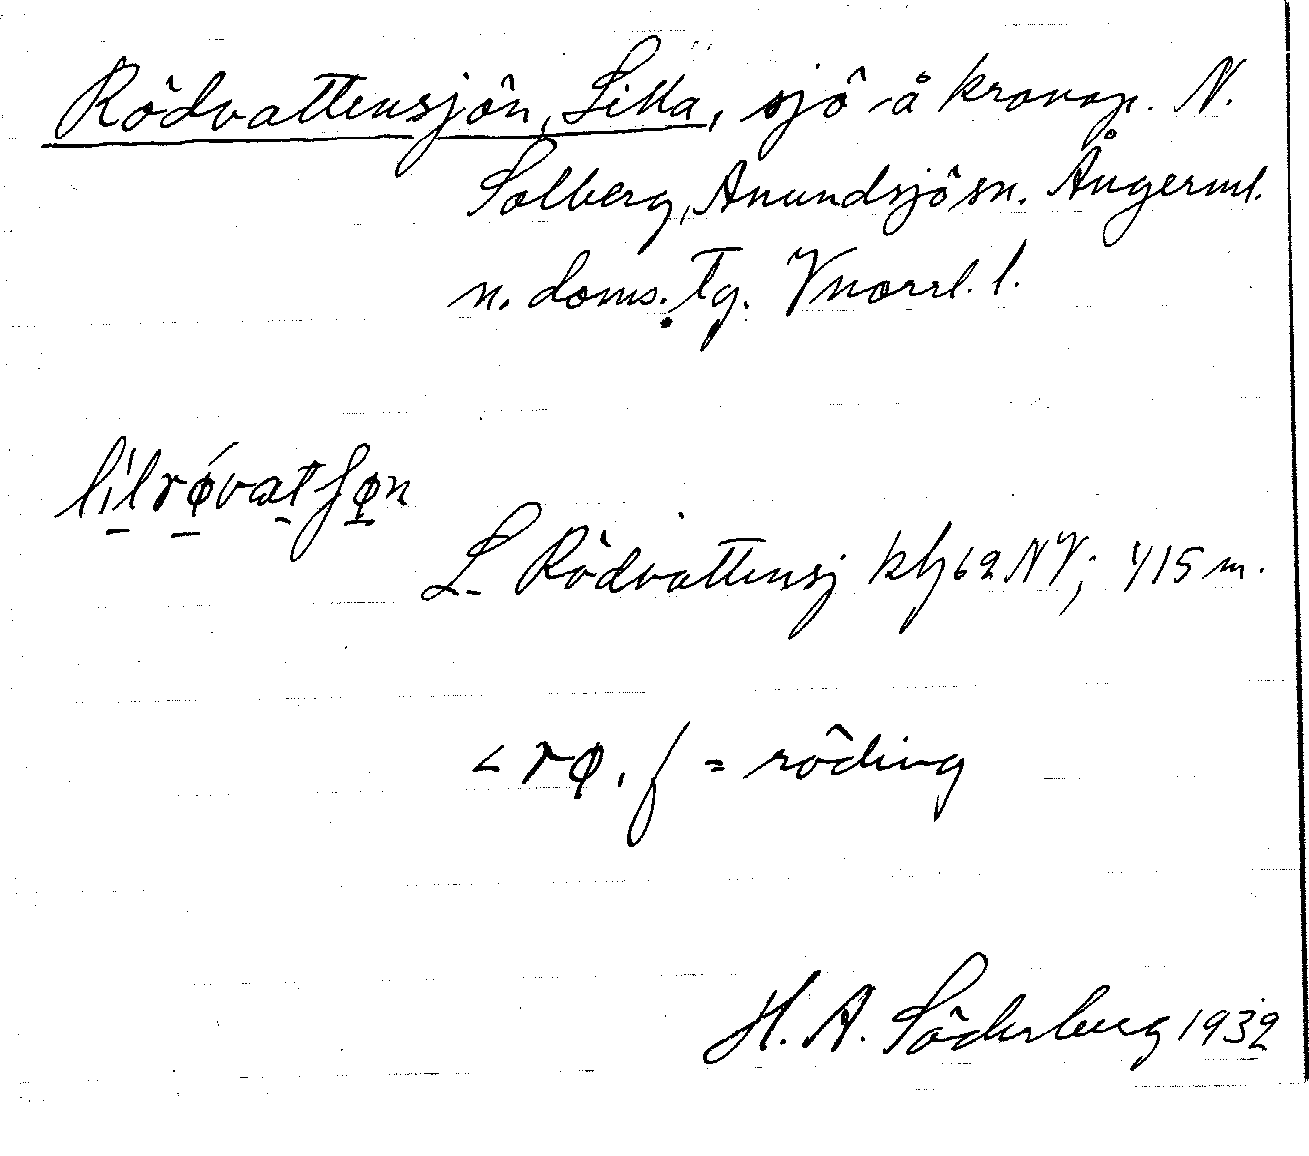 Rödvattensjön, Lilla, sjö å kronop. N.
Solberg, Anundsjö sn. Ångerml.
n. doms. Tg. Vnorrl. l.
lílrǿvatʃøn
L. Rödvattensj kfj 62 NV; 415 m.
< rø. f = röding
H. A. Söderberg 1932